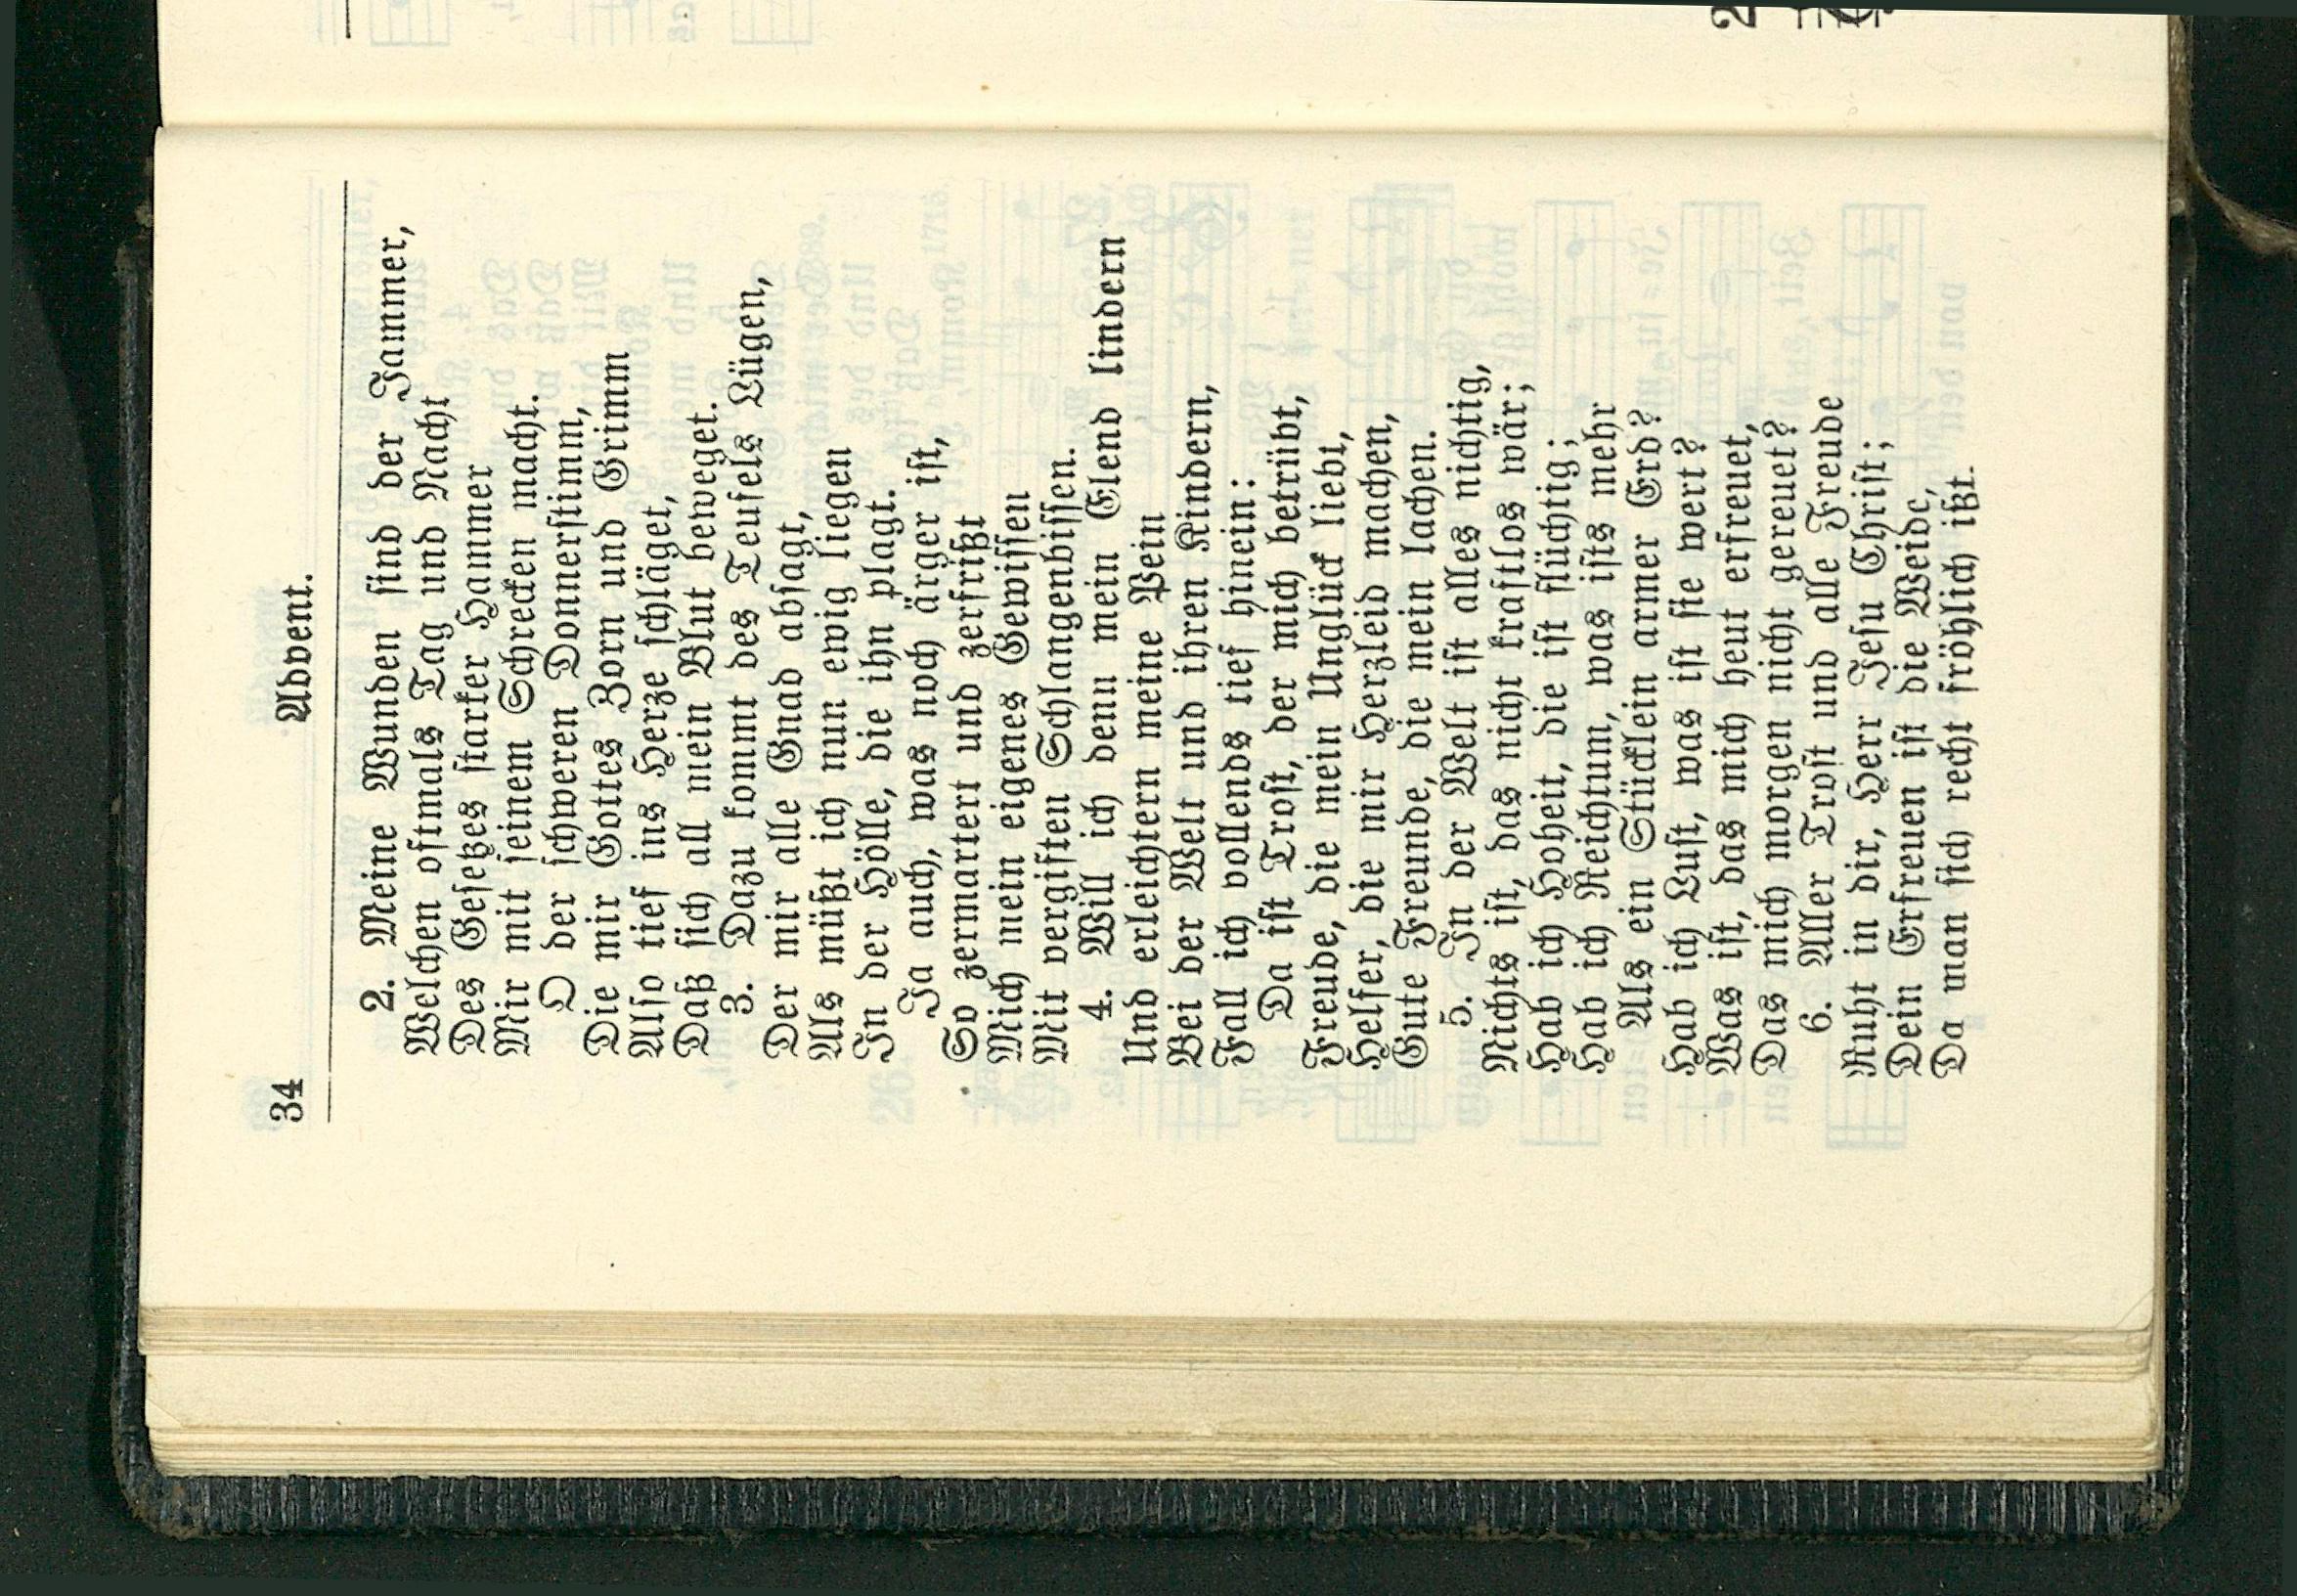 34
Advent.
2. Meine Wunden sind der Jammer,
Welchen oftmals Tag und Nacht
Des Gesetzes starker Hammer
Mir mit seinem Schrecken macht.
O der schweren Donnerstimm,
Die mir Gottes Zorn und Grimm
Also tief ins Herze schläget,
Daß sich all mein Blut beweget.
3. Dazu kommt des Teufels Lügen,
Der mir alle Gnad absagt,
Als müßt ich nun ewig liegen
In der Hölle, die ihn plagt.
Ja auch, was noch ärger ist,
So zermartert und zerfrißt
Mich mein eigenes Gewissen
Mit vergiften Schlangenbissen.
4. Will ich denn mein Elend lindern
Und erleichtern meine Pein
Bei der Welt und ihren Kindern,
Fall ich vollends tief hinein:
Da ist Trost, der mich betrübt,
Freude, die mein Unglück liebt,
Helfer, die mir Herzleid machen,
Gute Freunde, die mein lachen.
5. In der Welt ist alles nichtig,
Nichts ist, das nicht kraftlos wär;
Hab ich Hoheit, die ist flüchtig;
Hab ich Reichtum, was ists mehr
Als ein Stücklein armer Erd?
Hab ich Lust, was ist sie wert?
Was ist, das mich heut erfreuet,
Das mich morgen nicht gereuet?
6. Aller Trost und alle Freude
Ruht in dir, Herr Jesu Christ;
Dein Erfreuen ist die Weide,
Da man sich recht fröhlich ißt.
2